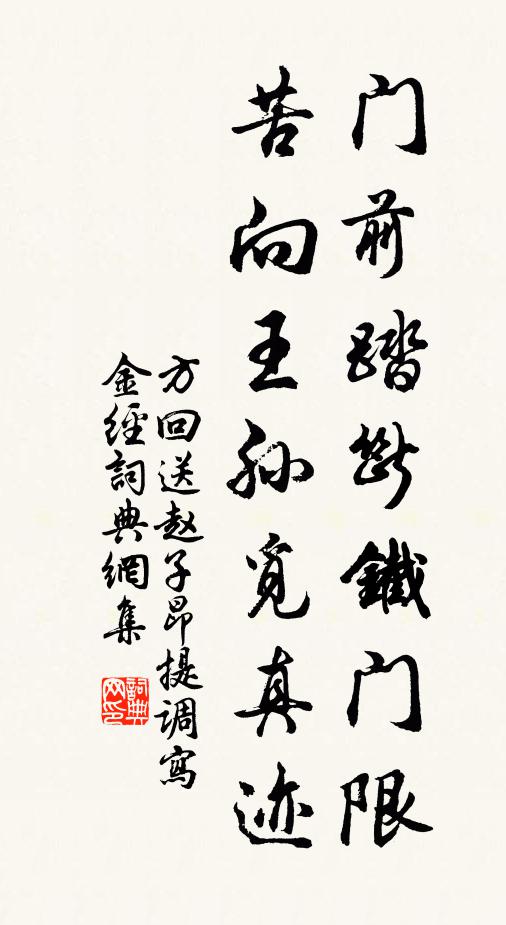 门前踏断鐵门限
苦向王孙覓真迹
方回送赵子昂提调寫
金經詞典網集
詞典网印